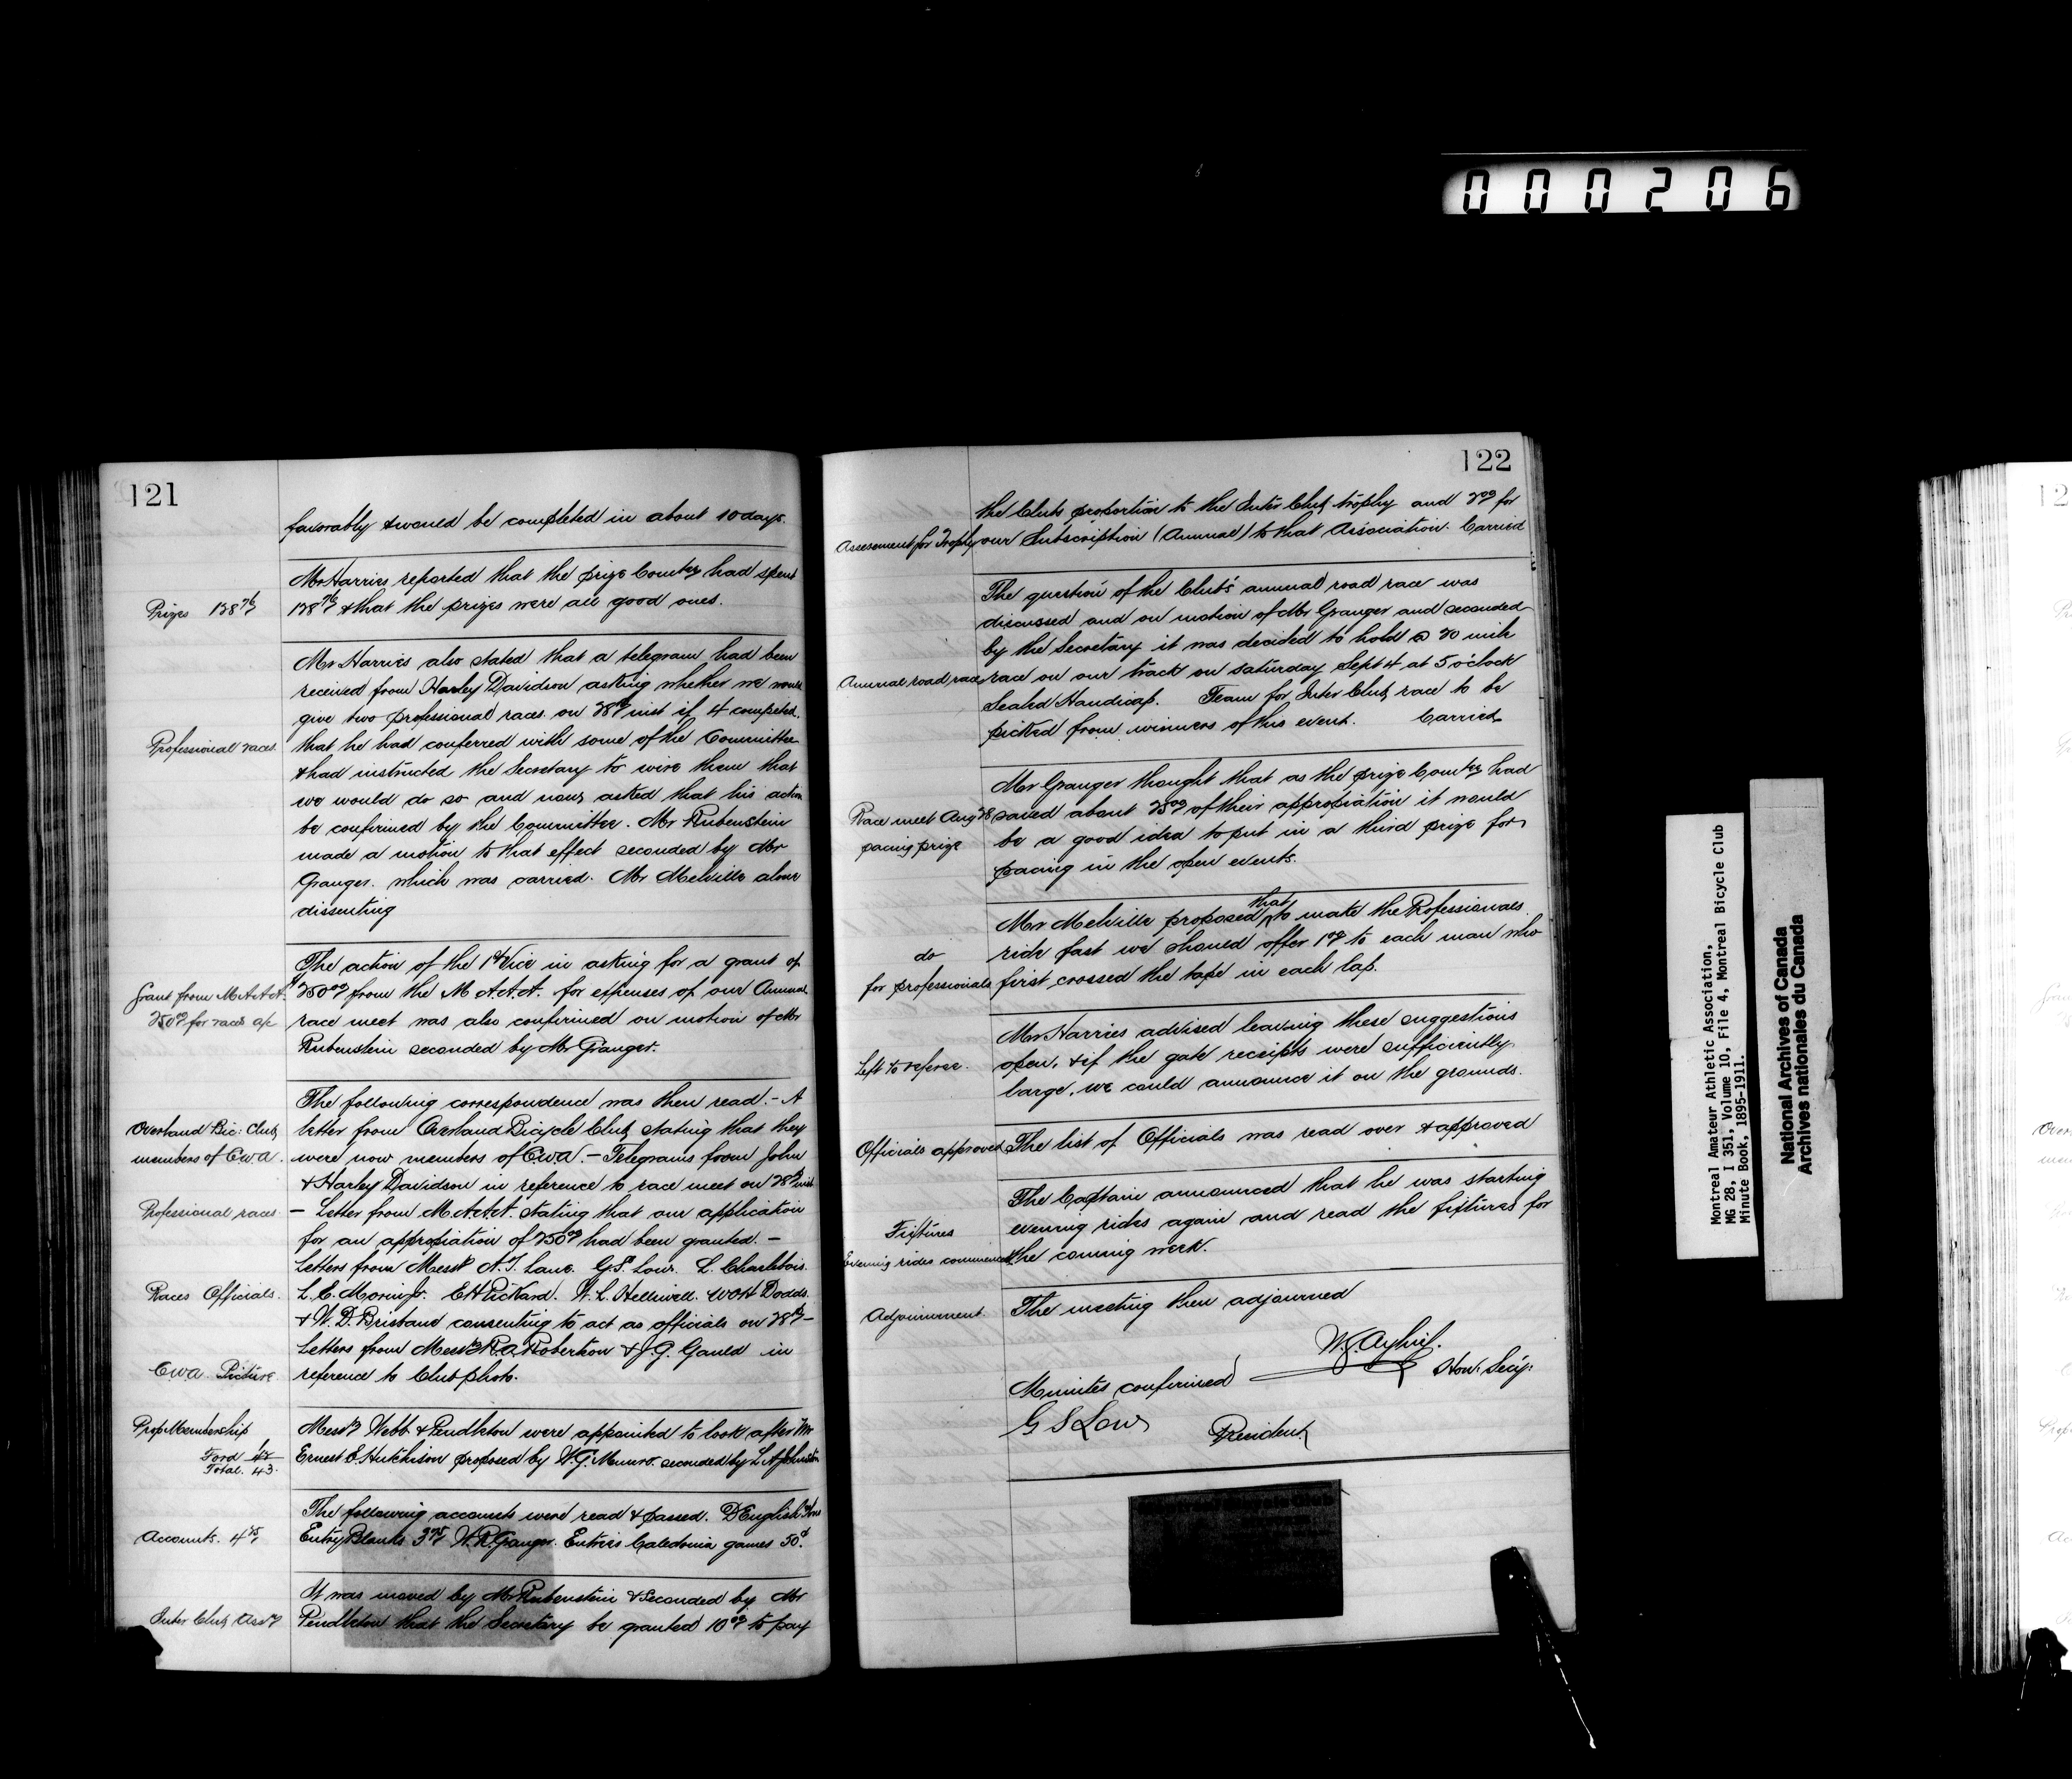 000206
121
favorably & would be completed in about 10 days.
Mr Harries reported that the prize Comtee had spent
Prizes 138
138 & that the prizes were all good ones.
Mr Harries also stated that a telegram had been
received from Harley Davidson asking whether we would
give two professional races on 28th inst if 4 competed,
Professional races.
that he had conferred with some of the Committee
& had instructed the Secretary to wire them that
we would do so and now asked that his action
be confirmed by the Committee. Mr Rubenstein
made a motion to that effect seconded by Mr
Granger. which was carried. Mr Melville alone
dissenting
The action of the 1st Vice in asking for a grant of
Grant from M.A.A.A.
250.00 from the M.A.A.A. for expenses of our Annual
250.00 for races a/c
race meet was also confirmed on motion of Mr
Rubenstein seconded by Mr Granger.
The following correspondence was then read. - A
Overland Bic: Club
letter from Overland Bicycle Club stating that they
members of C.W.A.
were now members of C.W.A. - Telegrams from John
& Harley Davidson in reference to race meet on 28th inst
Professional races
- Letter from M.A.A.A. stating that our application
for an appropiation of 250.00 had been granted. -
Letters from Messrs A.T. Lane. G.S. Low. L. Charlebois.
Races Officials.
L.C. Morin Jr. E H Pickard. W.L. Helliwell. W O H Dodds
& W.D. Brisband consenting to act as officials on 28th -
Letters from Messrs R.A. Robertson & J.G. Gauld in
C.W.A. Picture
reference to Club photo.
Prop Membership
Messrs Webb & Pendleton were appointed to look after Mr
Ford 42
Ernest E. Hutchison proposed by W.G. Munro. seconded by L A Johnston
Total. 43.
The following accounts were read & passed. D English & Sons
Accounts. 4.25
Entry Blanks 3.75 W.R. Granger. Entries Caledonia games 50¢.
It was moved by Mr Rubenstein & Seconded by Mr
Inter Club Assn
Pendleton that the Secretary be granted 10.00 to pay
122
the Clubs proportion to the Inter Club trophy and 2.00 for
Assessment for Trophy
our Subscription (Annual) to that Association. Carried
The question of the Club's annual road race was
discussed and on motion of Mr Granger and seconded
by the Secretary it was decided to hold a 20 mile
Annual road race
race on our track on Saturday Sept 4 at 5 o'clock
Sealed Handicap. Team for Inter Club race to be
picked from winners of this event. Carried
Mr Granger thought that as the prize Comtee had
Race meet Aug 28
saved about 25.00 of their appropiation it would
pacing prize
be a good idea to put in a third prize for
pacing in the open events.
Mr Melville proposed that to make the Professionals
do
ride fast we should offer 1.00 to each man who
for professionals
first crossed the tape in each lap.
Mr Harries advised leaving these suggestions
Left to referee.
open, & if the gate receipts were sufficiently
large, we could announce it on the grounds.
Officials approved
The list of Officials was read over & approved
The Captain announced that he was starting
Fixtures
evening rides again and read the fixtures for
Evening rides commenced
the coming week.
Adjournment
The meeting then adjourned
Hon: Secy:
Minutes confirmed
G S Low
President
Montreal Amateur Athletic Association,
MG 28, I 351, Volume 10, File 4, Montreal Bicycle Club
Minute Book, 1895-1911.
National Archives of Canada
Archives nationales du Canada